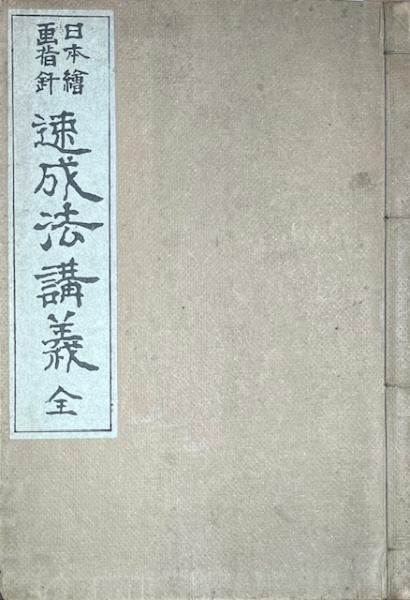 日本繪
画指針
速成法講義 全